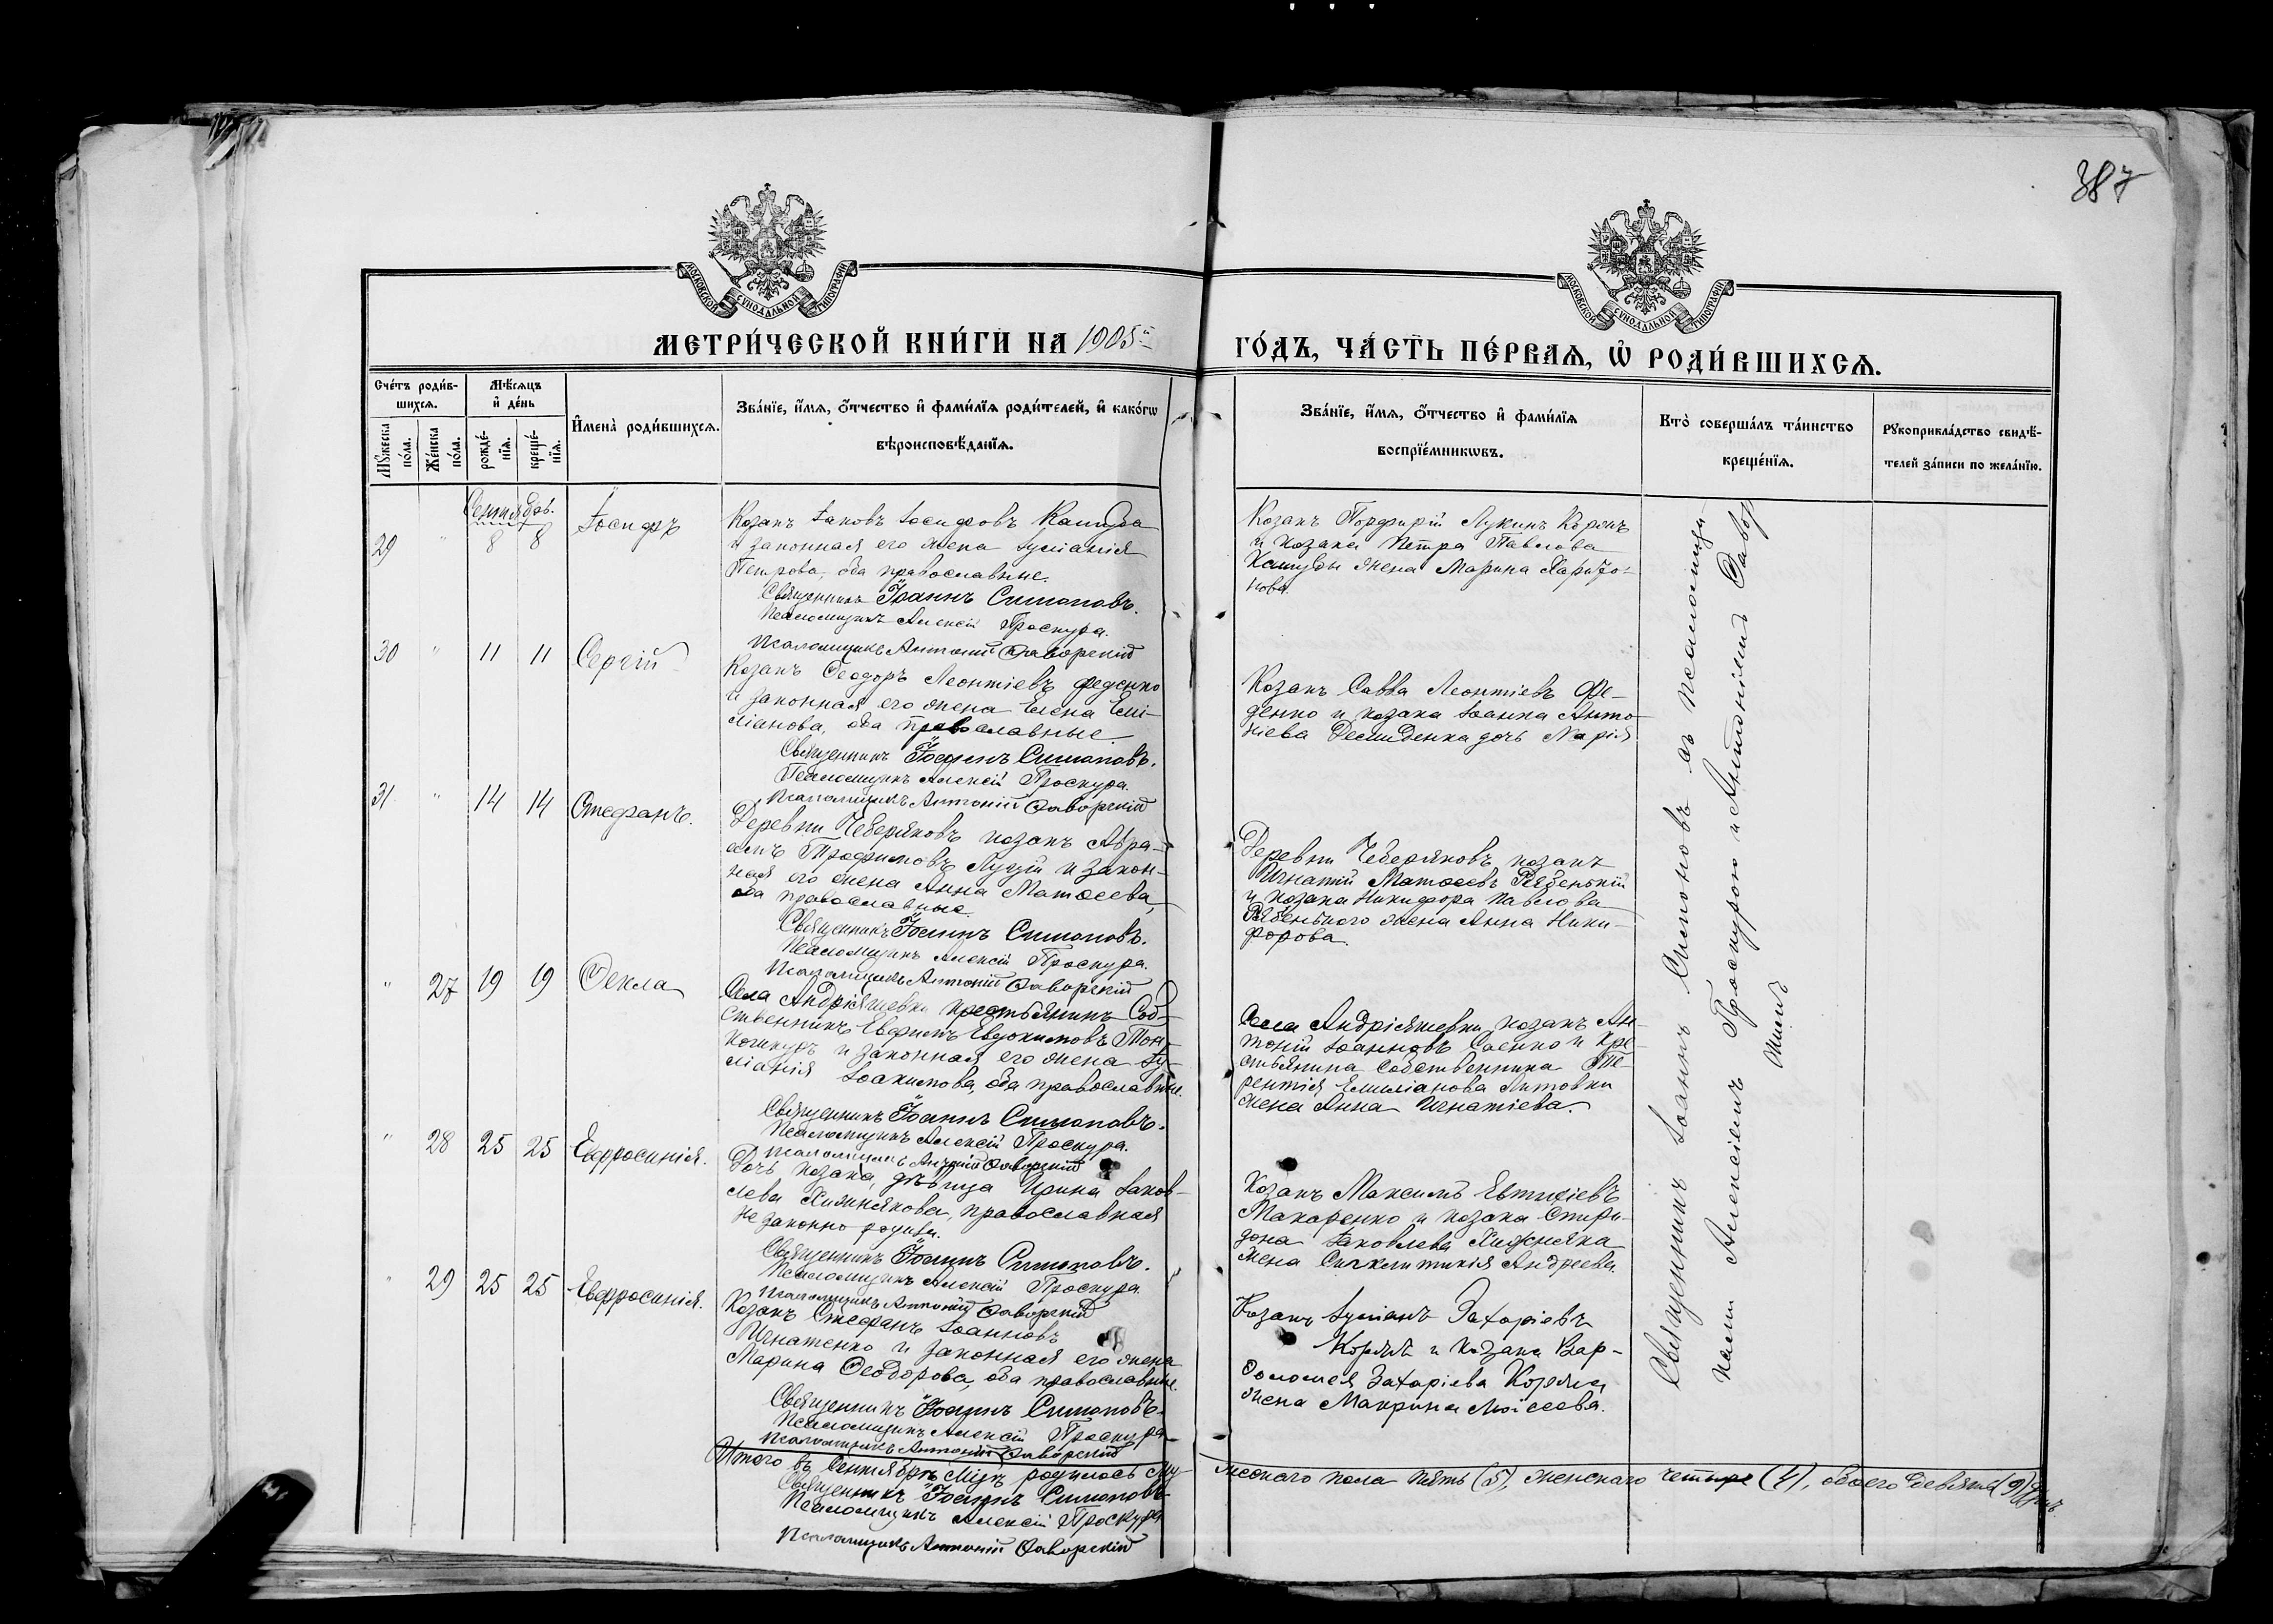 387
МОСКОВСКОЙ СѴНОДАЛЬНОЙ ТИПОГРАФІИ
МОСКОВСКОЙ СѴНОДАЛЬНОЙ ТИПОГРАФІИ
МЕТРИ́ЧЕСКОЙ КНИ́ГИ НА 1905й
ГО́ДЪ, ЧА́СТЬ ПЕ́РВАѦ, Ѡ҆ РОДИ́ВШИХСѦ.
Сче́тъ роди́в-
шихсѧ.
Мѣ́сѧцъ
и҆ де́нь
И҆мена̀ роди́вшихсѧ.
Зва́нїе, и҆́мѧ, ѻ҆́тчество и҆ фами́лїѧ роди́телей, и҆ како́гѡ
вѣроисповѣ́данїѧ.
Мꙋ́жеска
по́ла.
Же́нска
по́ла.
рожде́-
нїѧ.
креще́-
нїѧ.
Зва́нїе, и҆́мѧ, ѻ҆́тчество и҆ фами́лїѧ
воспрїе́мникѡвъ.
Кто̀ соверша́лъ та́инство
креще́нїѧ.
Рꙋкоприкла́дство свидѣ́-
телей за́писи по жела́нїю.
Сентябрь.
29 " 8 8 Іосифъ
Козакъ Іаковъ Іосифовъ Кашуба
и законная его жена Іуліанія
Петрова, оба православные.
Священникъ Іоаннъ Симоновъ.
Псаломщикъ Алексій Проскура.
Псаломщикъ Антоній Фаворскій
Козакъ Порфирій Лукинъ Коронъ
и козака Петра Павлова
Кашубы жена Марина Харито-
нова.
30 " 11 11 Сергій
Козакъ Ѳеодоръ Леонтіевъ Феденко
и законная его жена Елена Еми-
ліанова, оба православные.
Священникъ Іоаннъ Симоновъ.
Псаломщикъ Алексій Проскура.
Псаломщикъ Антоній Фаворскій
Козакъ Савва Леонтіевъ Фе-
денко и козака Іоанна Анто-
ніева Демиденка дочь Марія
31 " 14 14 Стефанъ.
Деревни Чеберяковъ козакъ Авра-
амъ Трофимовъ Луцій и закон-
ная его жена Анна Матѳеева,
оба православные.
Священникъ Іоаннъ Симоновъ.
Псаломщикъ Алексій Проскура.
Псаломщикъ Антоній Фаворскій
Деревни Чеберяковъ козакъ
Игнатій Матѳеевъ Рябенькій
и козака Никифора Павлова
Рябенького жена Анна Ники-
форова.
" 27 19 19 Ѳекла
Села Андріяшевки крестьянинъ Соб-
ственникъ Евфимъ Евдокимовъ
и законная его жена Іу-
ліанія Іоакимова, оба православные.
Священникъ Іоаннъ Симоновъ.
Псаломщикъ Алексій Проскура.
Псаломщикъ Антоній Фаворскій
Села Андріяшевки козакъ Ан-
тоній Іоанновъ Саенко и кре-
стьянина Собственника Те-
рентія Емиліанова Литовки
жена Анна Игнатіева.
" 28 25 25 Евфросинія.
Дочь козака, дѣвица Ирина Іаков-
лева Хижнякова, православная
незаконно родила.
Священникъ Іоаннъ Симоновъ.
Псаломщикъ Алексій Проскура
Псаломщикъ Антоній Фаворскій
Козакъ Максимъ Евтихіевъ
Макаренко и козака Спири-
дона Іаковлева Хижняка
жена Синклитикія Андреева.
" 29 25 25 Евфросинія.
Козакъ Стефанъ Іоанновъ
Игнатенко и законная его жена
Марина Ѳеодорова, оба православные.
Священникъ Іоаннъ Симоновъ.
Псаломщикъ Алексій Проскура
Псаломщикъ Антоній Фаворскій
Козакъ Іуліанъ Захаріевъ
Корява и козака Вар-
ѳоломея Захаріева Корява
жена Макрина Моісеева.
Священникъ Іоаннъ Симоновъ съ псаломщи-
ками Алексіемъ Проскурою и Антоніемъ Фавор
скимъ
Итого въ Сентябрѣ мцѣ родилось му-
жескаго пола пять (5), женскаго четыре (4), обоего девять (9) душъ.
Священникъ Іоаннъ Симоновъ
Псаломщикъ Алексій Проскура
Псаломщикъ Антоній Фаворскій